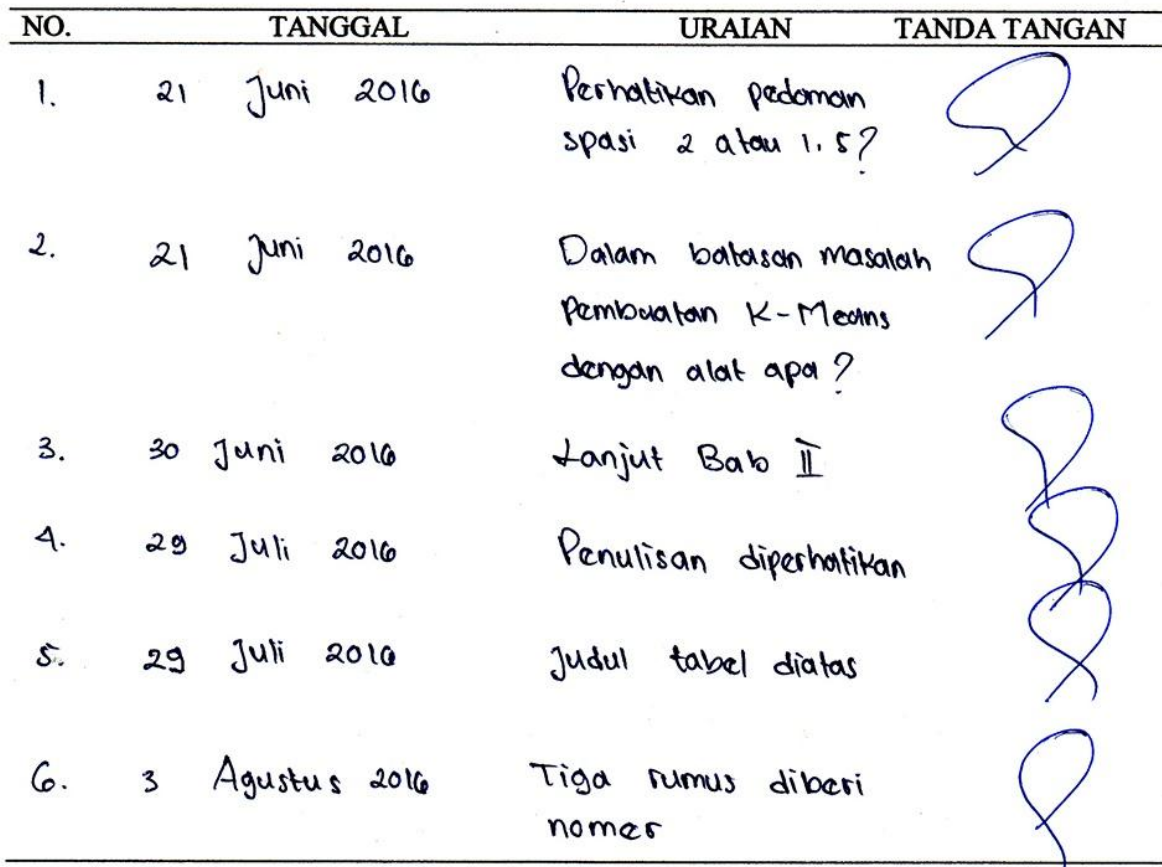 NO. TANGGAL URAIAN TANDA TANGAN
1. 21 Juni 2016 Perhatikan pedoman
spasi 2 atau 1.5?
2. 21 Juni 2016 Dalam batasan masalah
Pembuatan K-Means
dengan alat apa?
3. 30 Juni 2016 Lanjut Bab II
4. 29 Juli 2016 Penulisan diperhatikan
5. 29 Juli 2016 Judul tabel diatas
6. 3 Agustus 2016 Tiga rumus diberi
nomer